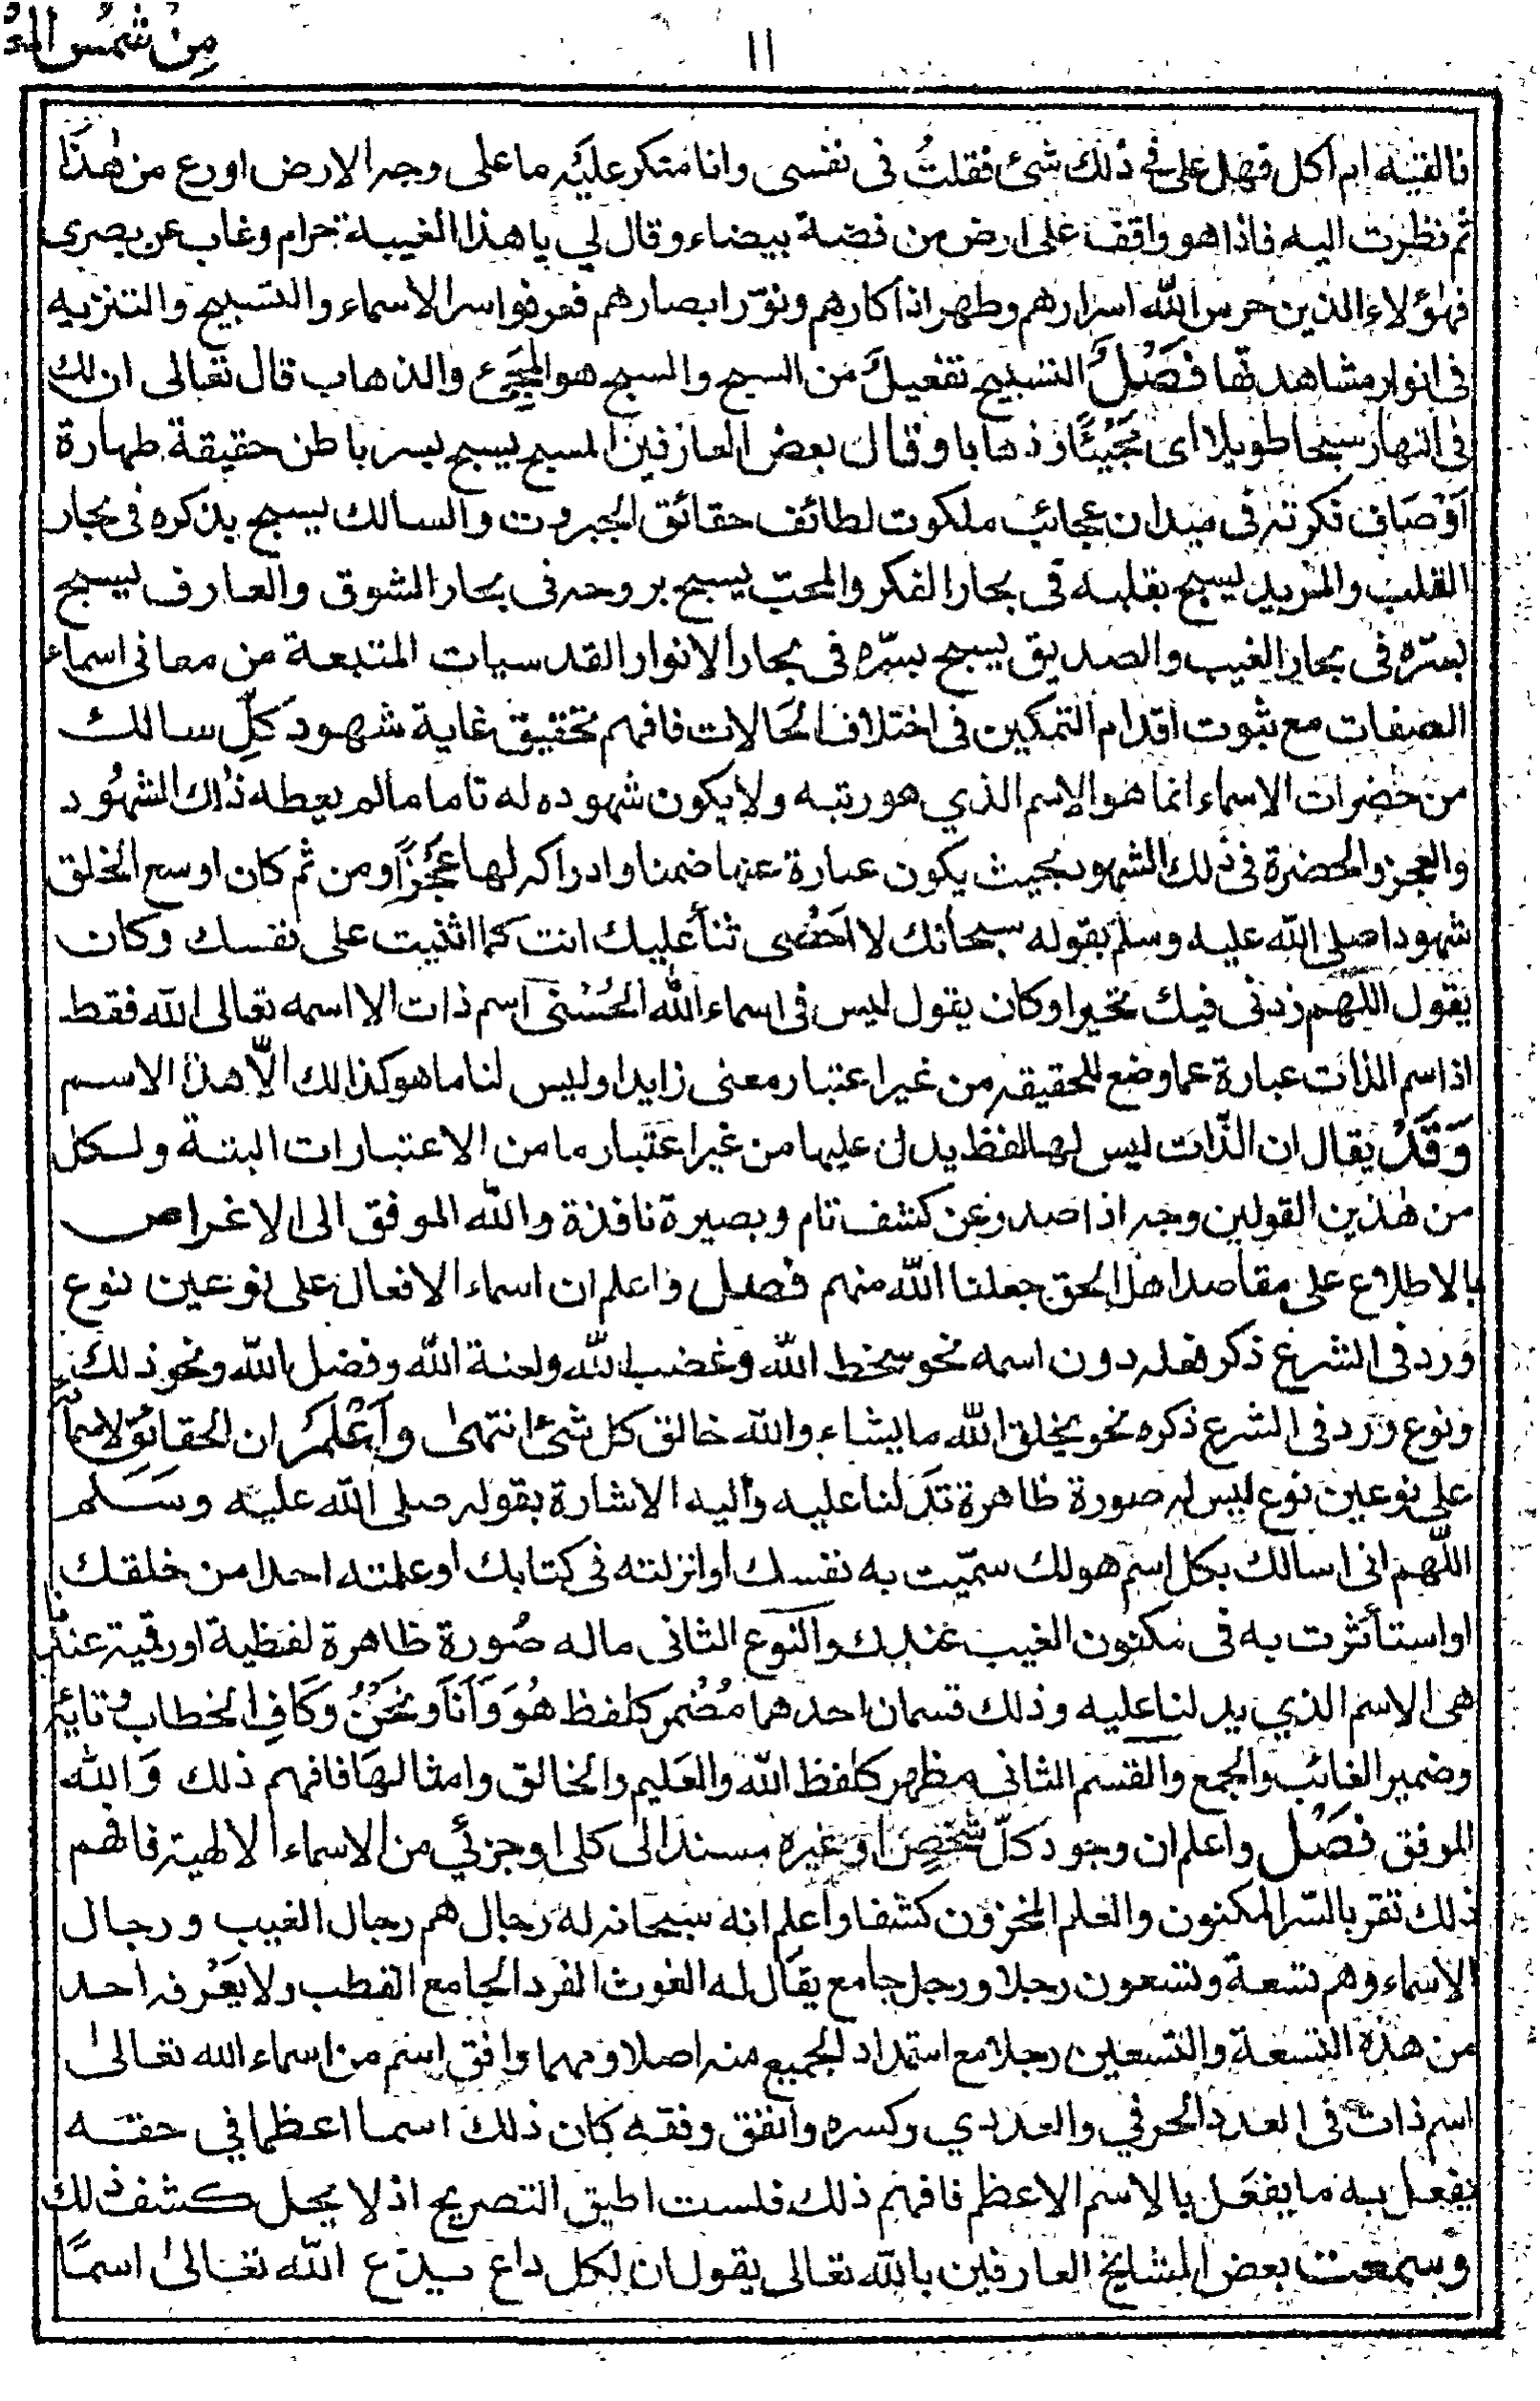 من شمس
١١
فالقيه ام اكل فهل على في ذلك شئ فقلتُ فى نفسى وانا متكر عليه ما على وجه الارض اورع من هٰذا
ثم نظرت اليه فاذا هو واقف على ارض من فضة بيضاء وقال لي يا هذا الغيبة حرام وغاب عن بصرى
فهٰؤلاء الذين حرس الله اسرارهم وطهر اذكارهم ونوّر ابصارهم فعرفوا سر الاسماء والتسبيح والتنزيه
فى انوار مشاهدتها فَصْلٌ التسبيح تفعيل من السبح والسبح هو المجئ والذهاب قال تعالى ان لك
فى النهار سبحا طويلا اى مجيئًا وذهابا وقال بعض العارفين المسبح يسبح بسر باطن حقيقة طهارة
اَوْصاف فكرته فى ميدان عجائب ملكوت لطائف حقائق الجبروت والسالك يسبح بذكره فى بحار
القلب والمريد يسبح بقلبه فى بحار الفكر والمحب يسبح بروحه فى بحار الشوق والعارف يسبح
بسّره فى بحار الغيب والصديق يسبح بسّره فى بحار الانوار القدسيات المتبعة من معانى اسماء
الصفات مع ثبوت اقدام التمكين فى اختلاف الحالات فافهم تحقيق غاية شهود كلّ سالك
من حضرات الاسماء انما هو الاسم الذي هو رتبه ولا يكون شهوده له تاما مالم يعطه ذٰلك الشهُود
والعجز والحضرة فى ذلك الشهود بحيث يكون عبارة عنها ضمنا وادراكه لها عَجْزًا ومن ثم كان اوسع الخلق
شهودا صلى الله عليه وسلم بقوله سبحانك لا احصى ثنأ عليك انت كما اثنيت على نفسك وكان
يقول اللهم زدنى فيك تحيرا وكان يقول ليس فى اسماء الله الحُسْنى اسم ذات الا اسمه تعالى الله فقط
اذ اسم الذات عبارة عما وضع للحقيقه من غير اعتبار معنى زايدا وليس لنا ما هو كذالك الّا هذا الاسم
وَقَدْ يقال ان الذّات ليس لها لفظ يدل عليها من غير اعتبار ما من الاعتبارات البتة ولكل
من هٰذين القولين وجه اذا صدر عن كشف تام وبصيرة نافذة والله الموفق الى الاغراض
بالاطلاع على مقاصد اهل الحق جعلنا الله منهم فصل واعلم ان اسماء الافعال على نوعين نوع
ورد فى الشرع ذكر فعله دون اسمه نحو سخط الله وغضب الله ولعنة الله وفضل الله ونحو ذلك
ونوع ورد فى الشرع ذكره نحو يخلق الله ما يشاء والله خالق كل شئ انتهى واَعْلَمْ ان الحقائق
على نوعين نوع ليس له صورة ظاهرة تدلنا عليه واليه الاشارة بقوله صلى الله عليه وسَلم
اللّهم انى اسالك بكل اسم هو لك سمّيت به نفسك او انزلته فى كتابك او علمته احدا من خلقك
او استأثرت به فى مكنون الغيب عندك والنوع الثانى ماله صُورة ظاهرة لفظية اورقية
هى الاسم الذي يدلنا عليه وذلك قسمان احدهما مُضْمر كلفظ هُوَ وَاَنَا وَنَحْنُ وَكَافِ الخطاب وتائه
وضمير الغائب والجمع والقسم الثانى مظهر كلفظ الله والعليم والخالق وامثالها فافهم ذلك وَالله
الموفق فصْل واعلم ان وجود كلّ شخصٍ او غيره مسند الى كلى او جزئي من الاسماء الالهية فافهم
ذلك تقر بالسّر المكنون والعلم المخزون كشفا واعلم انه سبحانه له رجال هم رجال الغيب ورجال
الاسماء وهم تسعة وتسعون رجلا ورجل جامع يقال له الغوث الفرد الجامع القطب ولا يَعْرفه احد
من هذه التسعة والتسعين رجلا مع استمداد الجميع منه اصلا ومهما وافق اسم من اسماء الله تعالىٰ
اسم ذات فى العدد الحرفي والعددي وكسره واتفق وفقه كان ذلك اسما اعظما في حقه
يفعل به ما يفعل بالاسم الاعظم فافهم ذلك فلست اطيق التصريح اذ لا يحل كشف ذلك
وسمعت بعض المشايخ العارفين بالله تعالى يقول ان لكل داع يدع الله تعالىٰ اسمًا